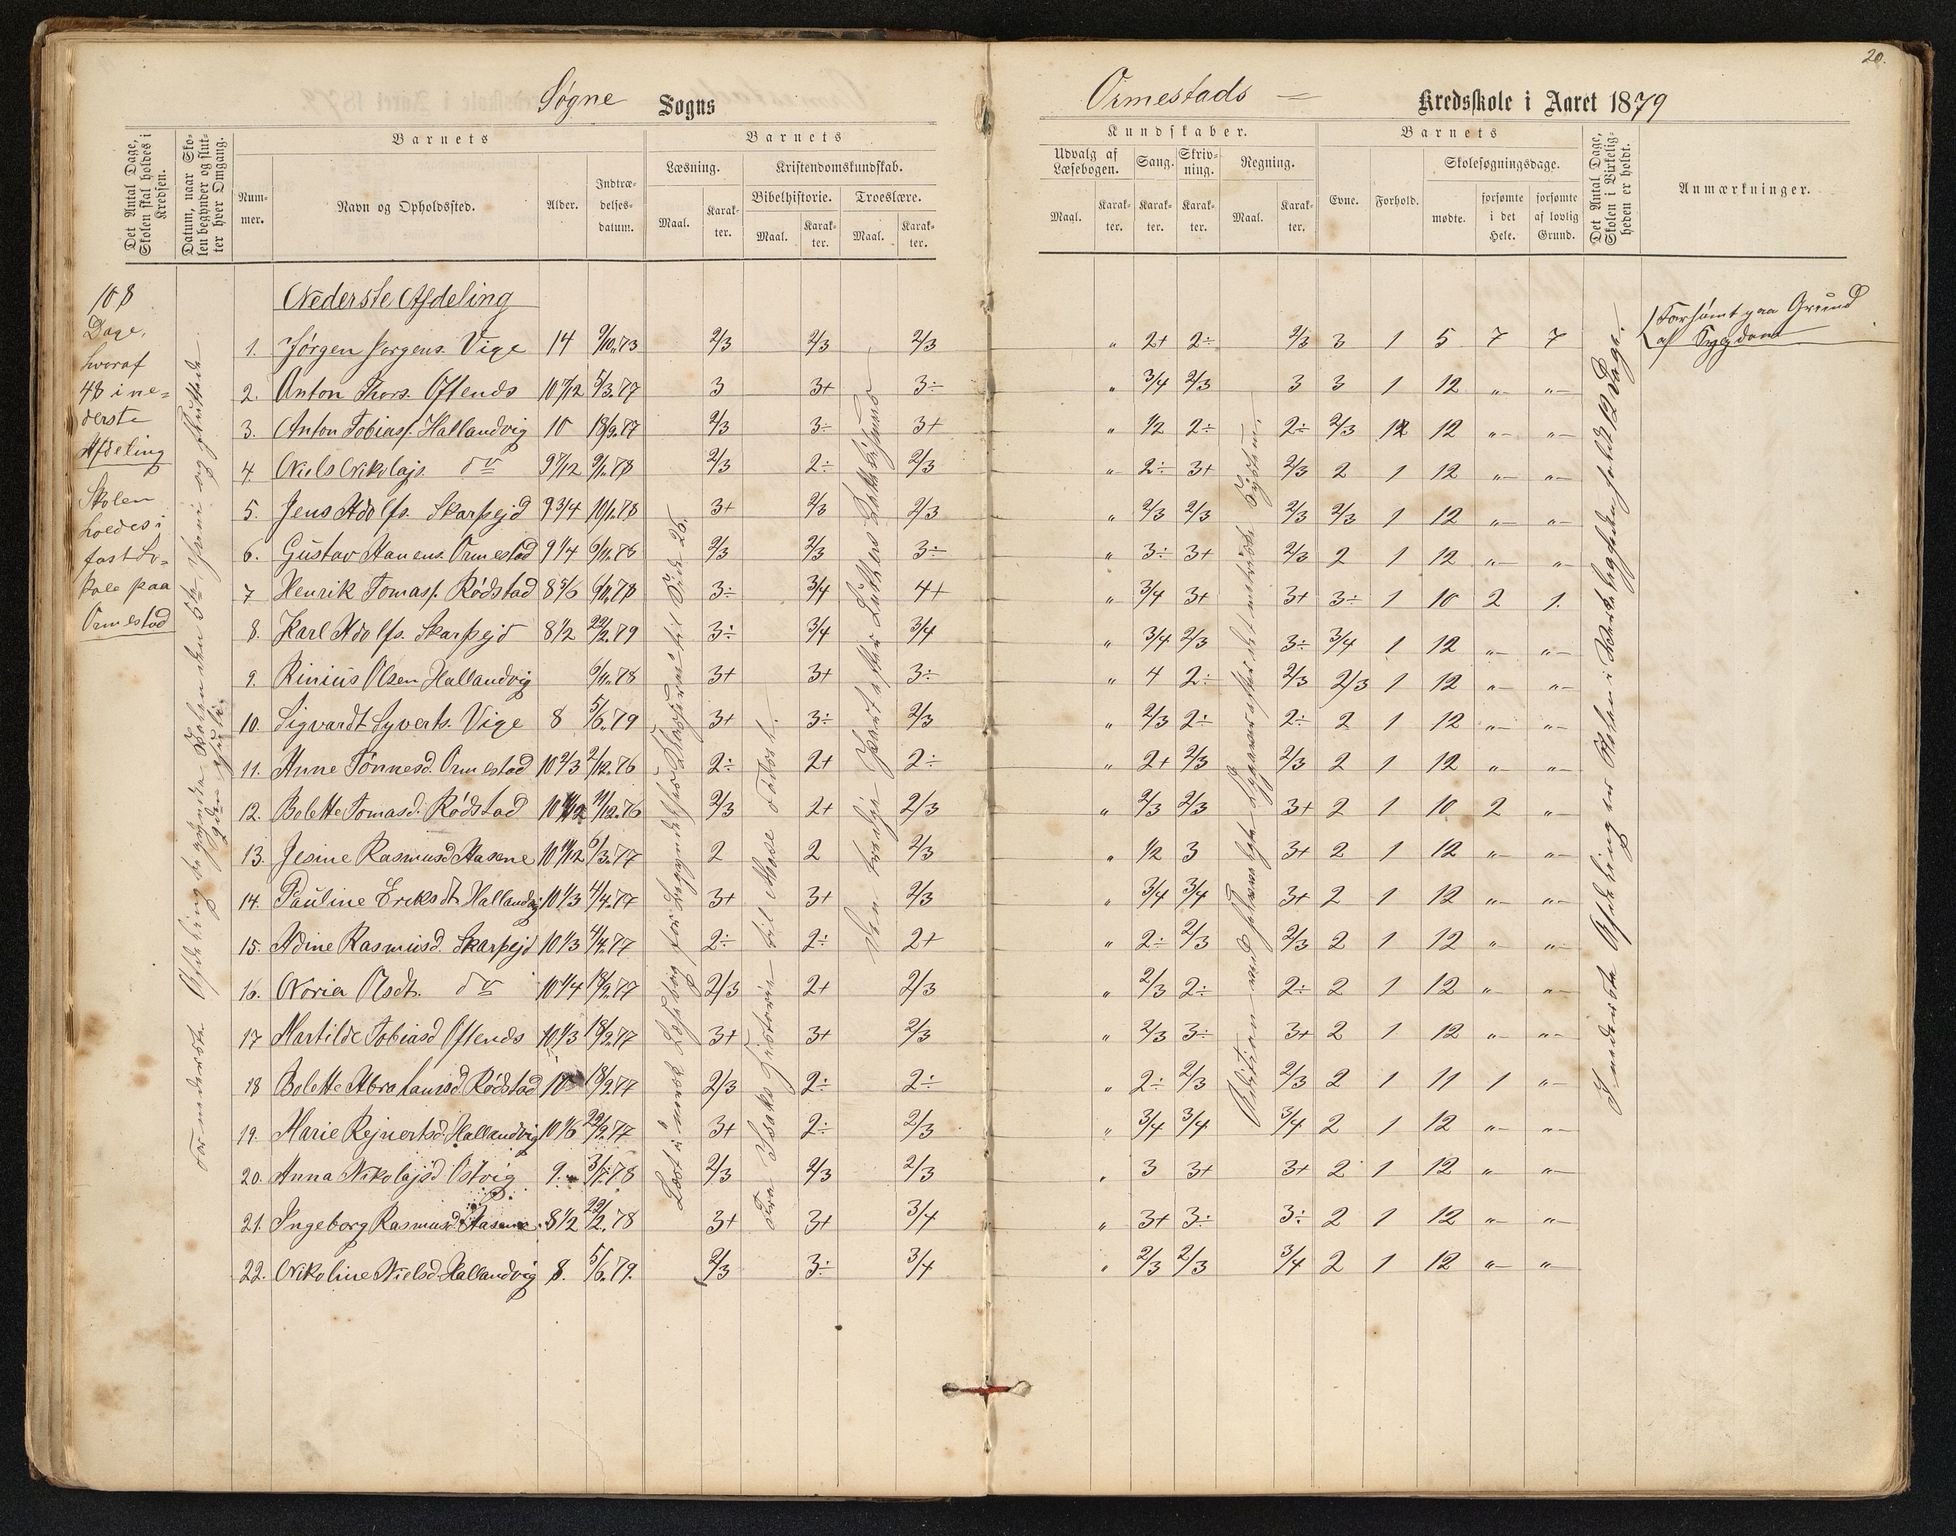 20.
Søgne Sogns
Ormestads Kredsskole i Aaret 1879
Det Antal Dage, Skolen skal holdes i Kredsen.
Datum, naar Skolen begynder og slutter hver Omgang.
Barnets
Nummer.
Navn og Opholdssted.
Alder.
Indtrædelsesdatum.
Barnets
Læsning.
Maal.
Karakter.
Kristendomskundskab.
Bibelhistorie.
Maal.
Karakter.
Troeslære.
Maal.
Karakter.
Kundskaber.
Udvalg af Læsebogen.
Maal.
Karakter.
Sang.
Karakter.
Skrivning.
Karakter.
Regning.
Maal.
Karakter.
Barnets
Evne.
Forhold.
Skolesøgningsdage.
mødte.
forsømte i det Hele.
forsømte af lovlig Grund.
Det Antal Dage, Skolen i Virkeligheden er holdt.
Anmærkninger.
108
Dage,
hvoraf
48 i ne=
derste
Afdeling
Skolen
holdes i
fast Lo=
kale paa
Ormestad
For nederste Afdeling begyndte Skolen den 5te Juni og sluttede
den Juli.
Nederste Afdeling
1. Jørgen Jørgens. Vige 14 9/10.73 2/3 2/3 2/3 " 2+ 2÷ 2/3 3 1 5 7 7 Forsømt paa Grund
af Sygdom
2. Anton Thors. Oftenes 10 7/12 5/3.77 3 3+ 3÷ " 3/4 2/3 3 3 1 12 "– "–
3. Anton Tobias. Hallandvig 10 18/9.77 2/3 3÷ 3+ " 1/2 2÷ 2÷ 2/3 1 12 "– "–
4. Niels Nikolajs. do 9 7/12 9/1.78 2/3 2÷ 2/3 " 2÷ 3+ 2/3 2 1 12 "– "–
5. Jens Adolfs. Skarpejd 9 3/4 10/1.78 3+ 2/3 2/3 " 2/3 2/3 2/3 2/3 1 12 "– "–
6. Gustav Hanens. Ormestad 9 1/4 6/11.78 2/3 2/3 3÷ " 3÷ 3+ 2/3 2 1 12 "– "–
7 Henrik Tomass. Rødstad 8 5/6 6/11.78 3÷ 3/4 4+ " 3/4 3+ 3+ 3÷ 1 10 2 1.
8. Karl Adolfs. Skarpejd 8 1/2 22/2.79 3÷ 3/4 3/4 " 3/4 2/3 3÷ 3/4 1 12 "– "–
9. Rinius Olsen Hallandvig 6/11.78 3+ 3+ 3÷ " 4 2÷ 2/3 2/3 1 12 "– "–
10. Sigvardt Syverts. Vige 8 5/6.79 3+ 3÷ 2/3 " 2/3 2÷ 2÷ 2 1 12 "– "–
11. Anne Tønnesd. Ormestad 10 2/3 2/12.76 2÷ 2+ 2÷ " 2+ 2/3 2/3 2 1 12 " "–
12. Bolette Tomasd. Rødstad 10 11/12 11/12.76 2/3 2+ 2/3 " 2/3 2/3 3+ 2 1 10 2 "–
13. Jesine Rasmusd. Aasene 10 10/12 6/3.77 2 2 2/3 " 1/2 3 3+ 2 1 12 "– "–
14. Pauline Eriksdt. Hallandvig 10 1/3 4/4.77 3+ 3+ 2/3 " 3/4 3/4 3+ 2 1 12 "– "–
15. Adine Rasmusd. Skarpejd 10 1/3 4/4.77 2÷ 2÷ 2+ " 2÷ 2/3 2/3 2 1 12 " "–
16. Noria Olsdt. do 10 1/4 18/9.77 2/3 2+ 2/3 " 2/3 2÷ 2÷ 2 1 12 " "–
17 Martilde Tobiasd Oftenes 10 1/3 18/9.77 3+ 3+ 2/3 " 2/3 3÷ 3+ 2 1 12 "– "–
18 Bolette Abrahamsd Rødstad 10 18/9.77 2/3 2÷ 2÷ " 2÷ 2/3 2/3 2 1 11 1 "–
19. Marie Rejnertsd. Hallandvig 10 1/6 22/9.77 3+ 2÷ 2/3 " 3/4 3/4 3/4 2 1 12 "– "–
20. Anna Nikolajsd Østvig 9. 3/7.78 2/3 2/3 2/3 " 3 3+ 3+ 2 1 12 " "–
21. Ingeborg Rasmusd Aasene 8 1/2 22/2.78 3+ 3+ 3/4 " 3+ 3÷ 3÷ 2 1 12 "– "–
22. Nikoline Nielsd. Hallandvig 8. 5/6.79. 2/3 3÷ 3/4 " 2/3 2/3 3/4 2 1 12 "– "–
for Begyndelsen til Side 25.
Fra Isaks Historie til Mose Fødsel.
Den tredje Part efter Luthers
I nederste Afdeling er Skolen i Virkeligheden holdt 12 Dage.